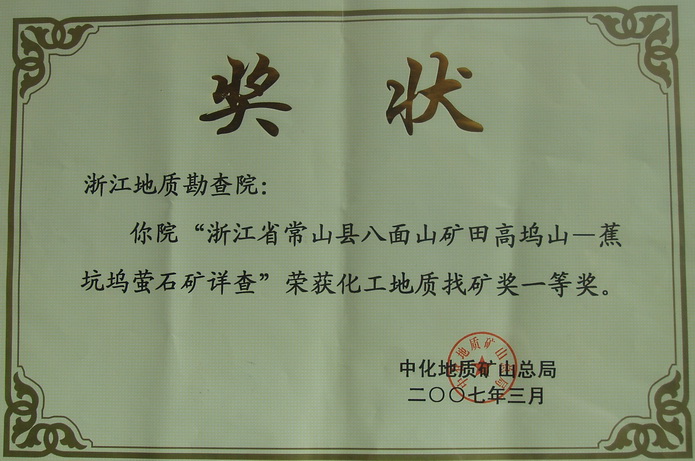 奖状
浙江地质勘查院：
你院“浙江省常山县八面山矿田高坞山—蕉
坑坞萤石矿详查”荣获化工地质找矿奖一等奖。
中化地质矿山总局
二〇〇七年三月